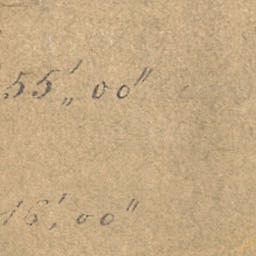 55' „ 00"
16' „ 00"